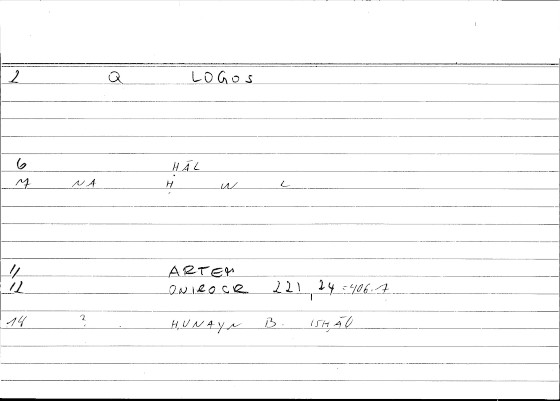 2 Q LOGOS
6 ḤĀL
M NA Ḥ W L
11 ARTEM
12 ONIROCR 221,24=406.7
14 ? ḤUNAYN B. ISḤĀQ